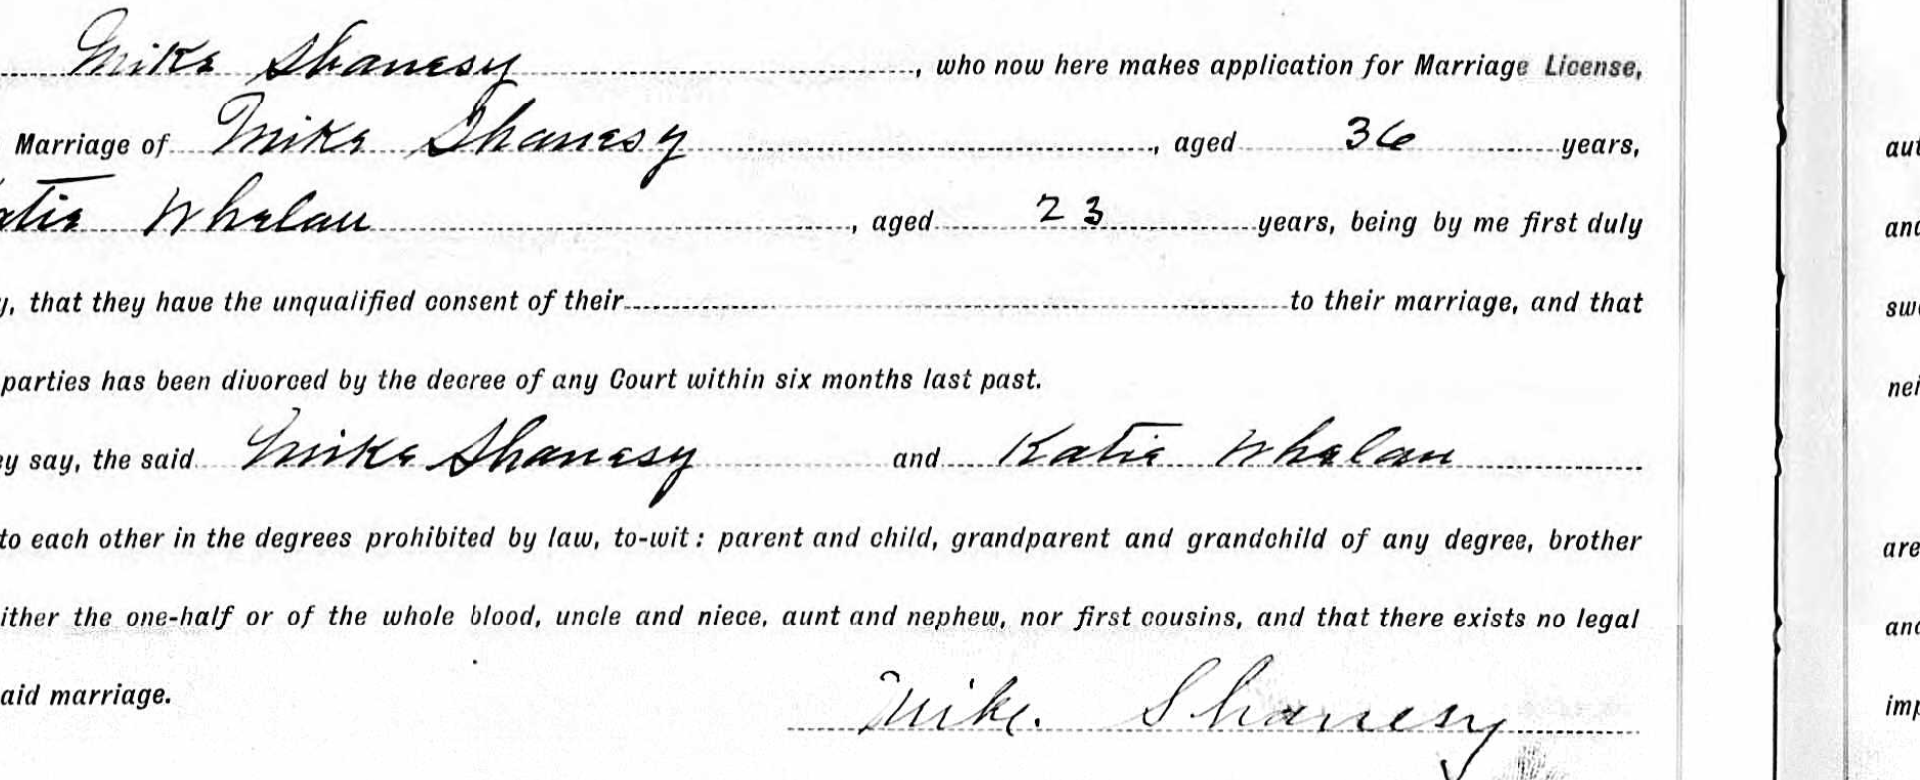 Mike Shanesy, who now here makes application for Marriage License,
Marriage of Mike Shanesy, aged 36 years,
atie Whelan, aged 23 years, being by me first duly
y, that they have the unqualified consent of their to their marriage, and that
parties has been divorced by the decree of any Court within six months last past.
ey say, the said Mike Shanesy and Katie Whelan
to each other in the degrees prohibited by law, to-wit: parent and child, grandparent and grandchild of any degree, brother
ither the one-half or of the whole blood, uncle and niece, aunt and nephew, nor first cousins, and that there exists no legal
aid marriage.
Mike. Shanesy
aut
and
swo
nei
are
and
imp